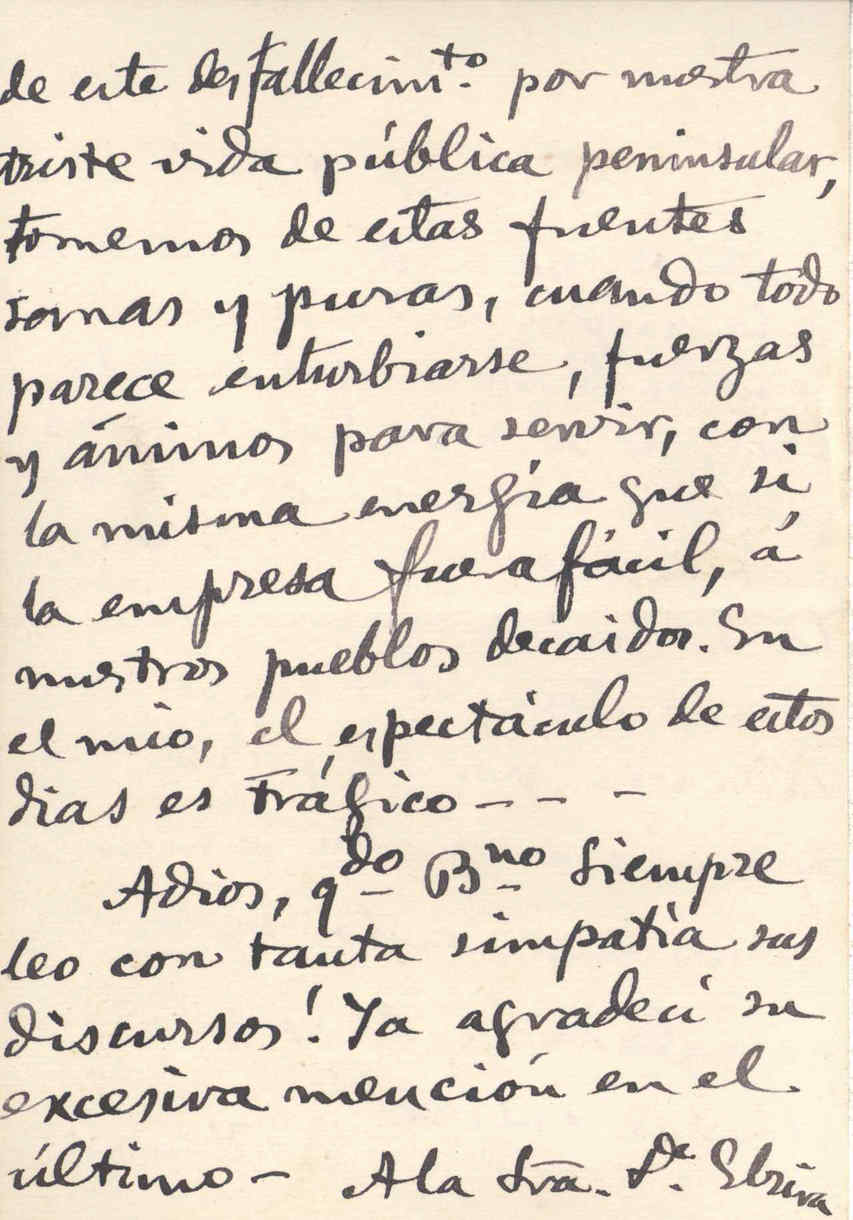 de este desfallecimto. por nuestra
triste vida pública peninsular,
tomemos de estas fuentes
sanas y puras, cuando todo
parece enturbiarse, fuerzas
y ánimos para servir, con
la misma energía que si
la empresa fuera fácil, á
nuestros pueblos decaidos. En
el mio, el espectáculo de estos
dias es trágico - - -
Adios, qdo Bno Siempre
leo con tanta simpatía sus
discursos! Ya agradecí su
excesiva mención en el
último - A la Sra. Da. Elzira